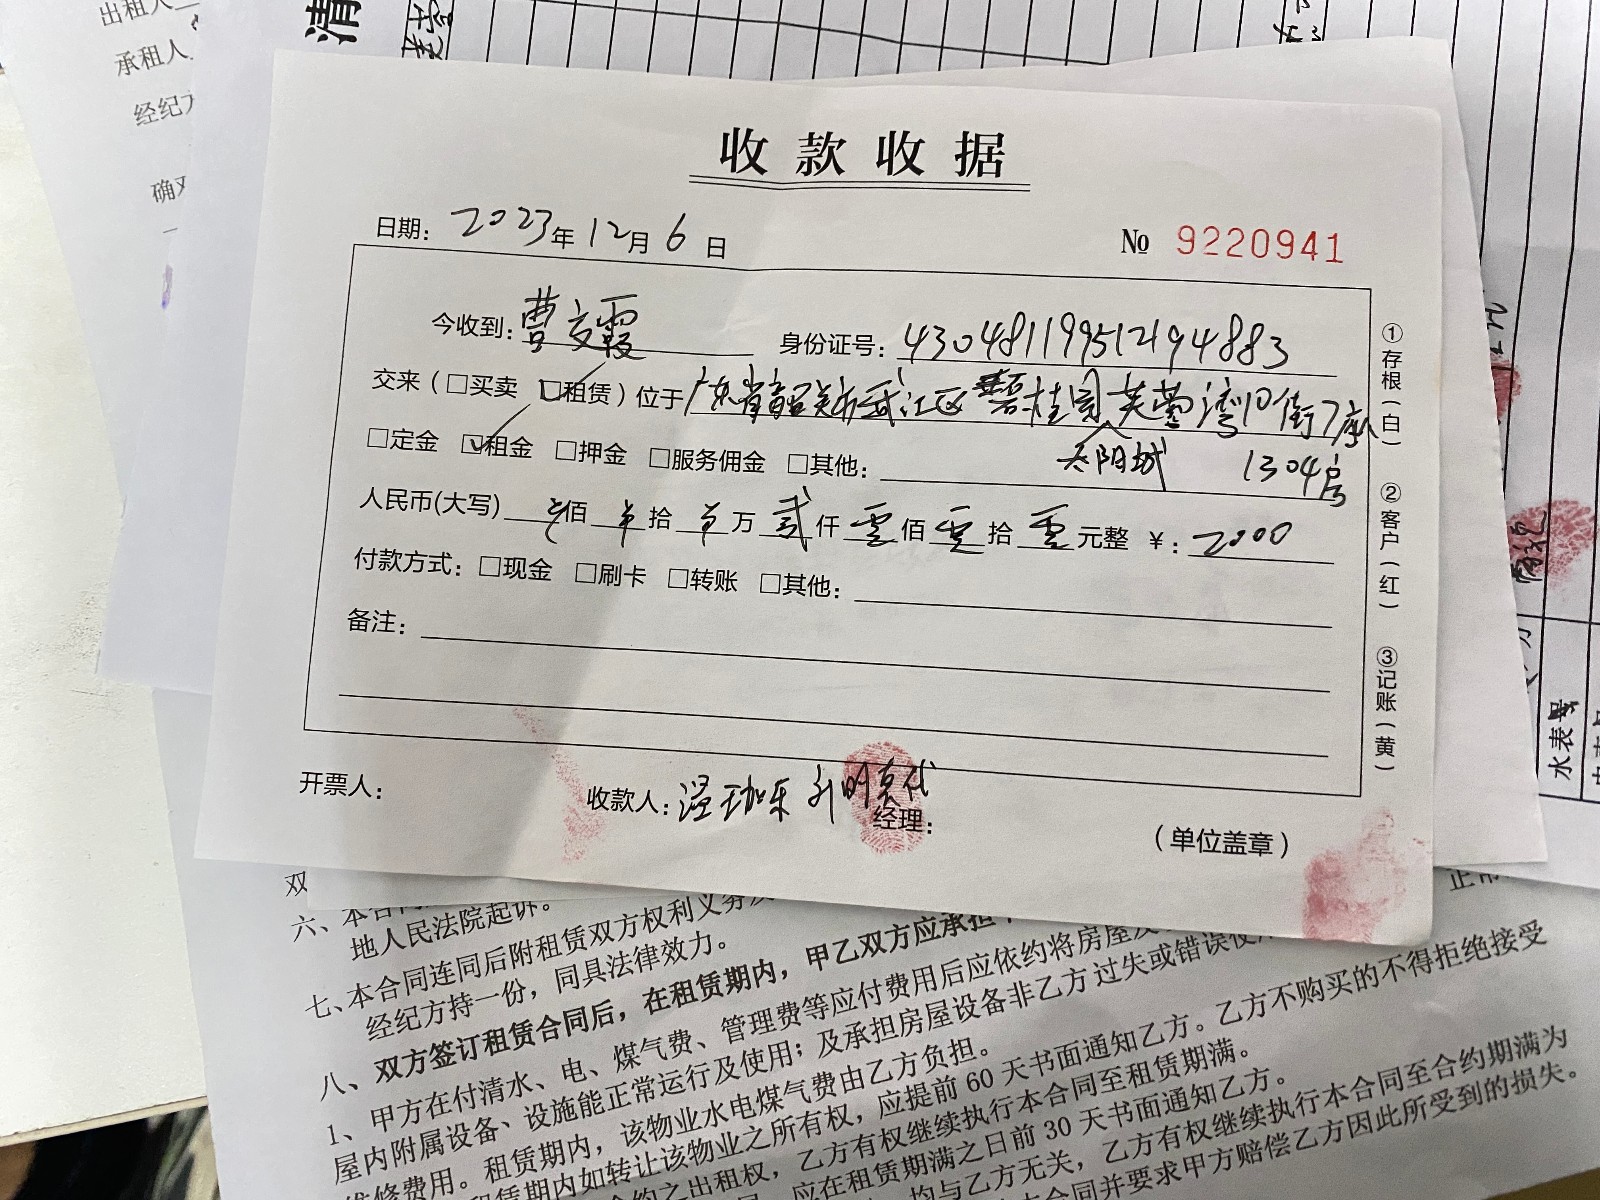 出租人
承租人
经纪方
清
收款收据
日期: 2023年12月6日
№ 9220941
今收到: 曹文霞 身份证号: 430481199512194883
交来(□买卖 ☑租赁)位于广东省韶关市武江区碧桂园芙蓉湾10街7座
□定金 ☑租金 □押金 □服务佣金 □其他: 太阳城 1304房
人民币(大写) 佰 拾 万 贰仟零佰零拾零元整 ¥: 2000
付款方式: □现金 □刷卡 □转账 □其他:
备注:
①存根(白) ②客户(红) ③记账(黄)
开票人: 收款人: 温珈乐 代 经理: (单位盖章)
水表号
双
六、本合
地人民法院起诉。
七、本合同连同后附租赁双方权利义务
经纪方持一份，同具法律效力。
八、双方签订租赁合同后，在租赁期内，甲乙双方应承担
1、甲方在付清水、电、煤气费、管理费等应付费用后应依约将房屋及
屋内附属设备、设施能正常运行及使用；及承担房屋设备非乙方过失或错误使
维修费用。租赁期内，该物业水电煤气费由乙方负担。
租赁期内如转让该物业之所有权，应提前 60 天书面通知乙方。乙方不购买的不得拒绝接受
之出租权，乙方有权继续执行本合同至租赁期满。
应在租赁期满之日前 30 天书面通知乙方。
均与乙方无关，乙方有权继续执行本合同至合约期满为
合同并要求甲方赔偿乙方因此所受到的损失。